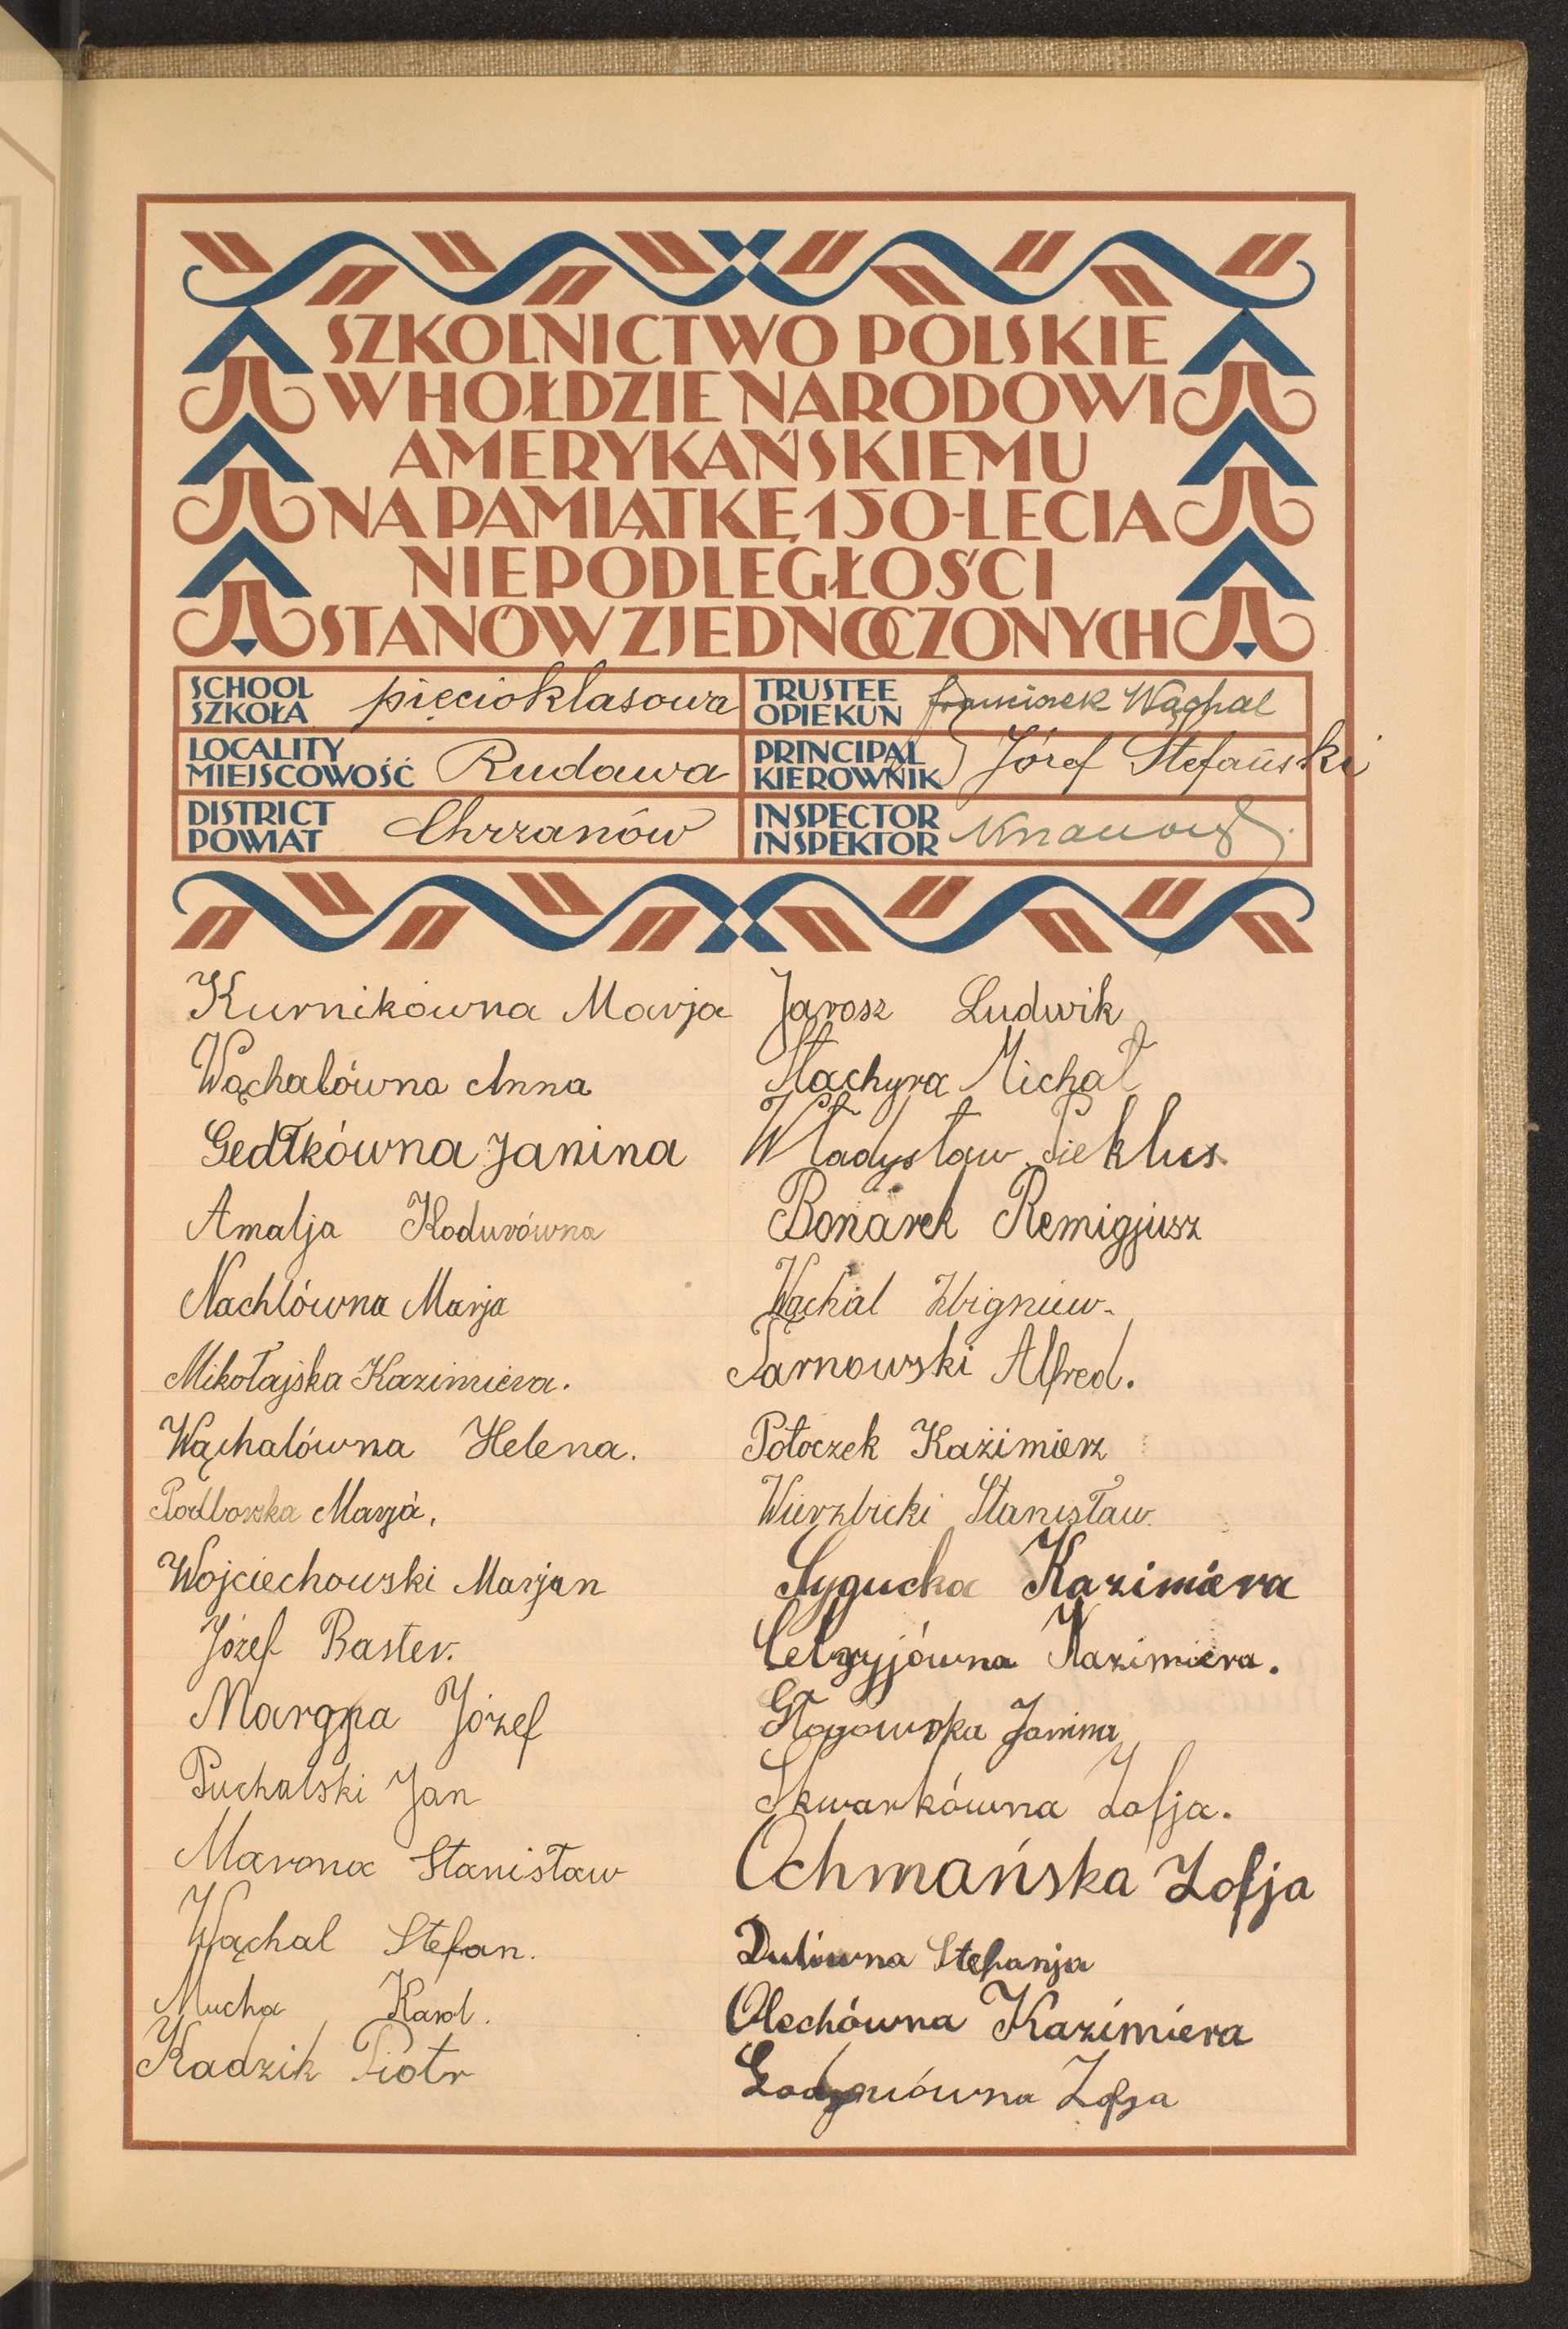 SZKOLNICTWO POLSKIE
W HOŁDZIE NARODOWI
AMERYKAŃSKIEMU
NA PAMIĄTKĘ 150-LECIA
NIEPODLEGŁOŚCI
STANÓW ZJEDNOCZONYCH
SCHOOL
SZKOŁA
pięcioklasowa
TRUSTEE
OPIEKUN
Franciszek Wąchal
LOCALITY
MIEJSCOWOŚĆ
Rudawa
PRINCIPAL
KIEROWNIK
Józef Stefański
DISTRICT
POWIAT
Chrzanów
INSPECTOR
INSPEKTOR
Kurnikówna Marja
Wąchalówna Anna
Gedłkówna Janina
Amalja Kodurówna
Nachlówna Marja
Mikołajska Kazimiera.
Wąchalówna Helena.
Podborska Marja.
Wojciechowski Marjan
Józef Baster.
Józef
Puchalski Jan
Marona Stanisław
Wąchal Stefan.
Mucha Karol.
Kadzik Piotr
Jarosz Ludwik
Stachyra Michał
Władysław Pieklus.
Bonarek Remigjusz
Wąchal Zbigniew.
Tarnowski Alfred.
Potoczek Kazimierz
Wierzbicki Stanisław.
Sygucka Kazimiera
Kazimiera.
Głogowska Janina
Skwarkówna Zofja.
Ochmańska Zofja
Dulówna Stefanja
Olechówna Kazimiera
Zofja